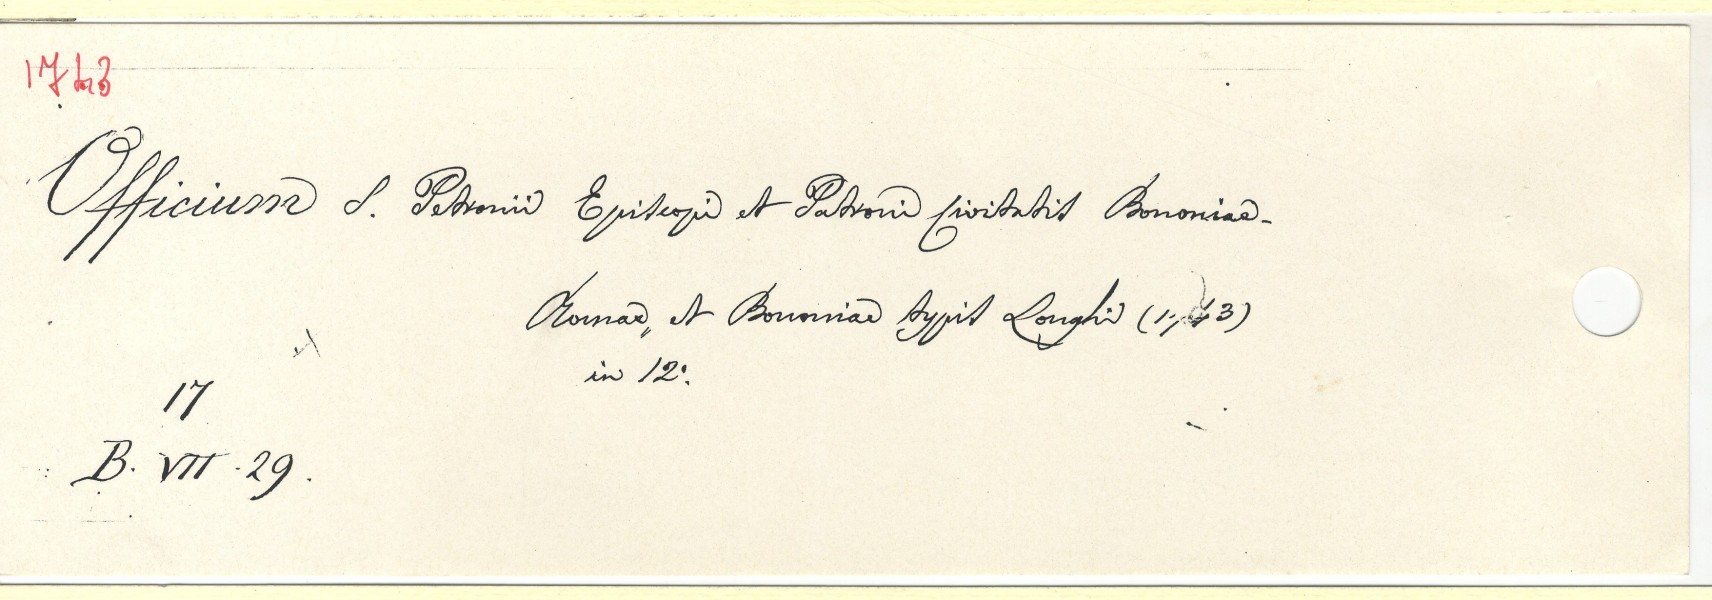 1743
Officium S. Petronii Episcopi et Patroni Civitatis Bononiae.
Romae, et Bononiae typis Longhi (1743)
in 12:
17
B. VII. 29.